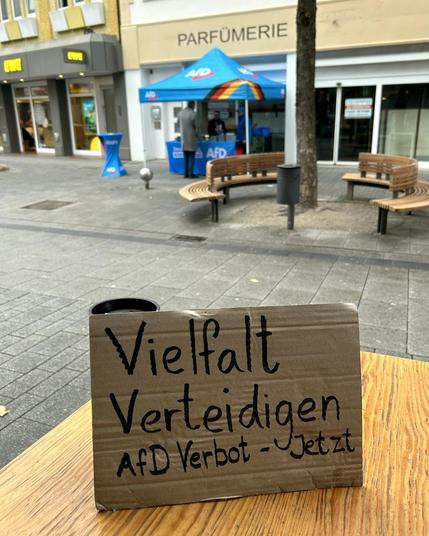 PARFÜMERIE
EWE
EWE
AfD
AfD
Vielfalt
Verteidigen
AfD Verbot - Jetzt